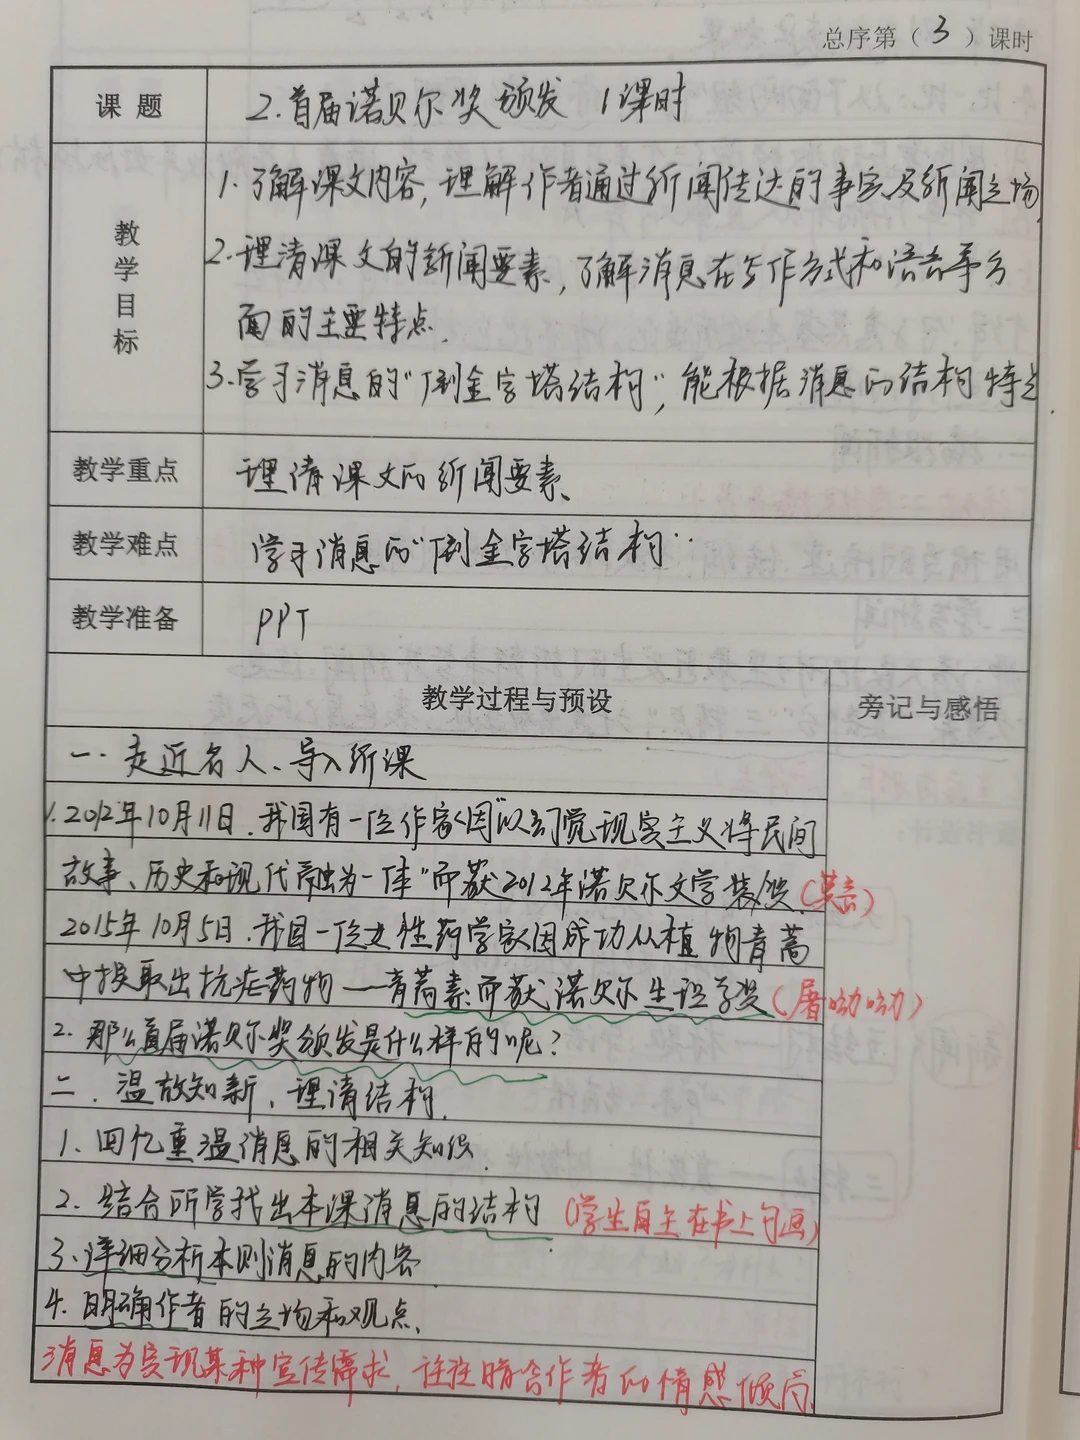 总序第（3）课时
课题
2.首届诺贝尔奖颁发 1课时
教学目标
1.了解课文内容，理解作者通过新闻传达的事实及新闻立场
2.理清课文的新闻要素，了解消息在写作方式和语言等方
面的主要特点.
3.学习消息的“倒金字塔结构”，能根据消息的结构特点.
教学重点
理清课文的新闻要素、
教学难点
学习消息的“倒金字塔结构”
教学准备
PPT
教学过程与预设
旁记与感悟
一. 走近名人、导入新课
1.2012年10月11日.我国有一位作家因“以幻觉现实主义将民间
故事、历史和现代融为一体”而获2012年诺贝尔文学奖.(莫言)
2015年10月5日.我国一位女性药学家因成功从植物青蒿
中提取出抗疟药物——青蒿素而获诺贝尔生理学奖(屠呦呦)
2. 那么首届诺贝尔奖颁发是什么样的呢？
二. 温故知新，理清结构.
1. 回忆重温消息的相关知识.
2. 结合所学找出本课消息的结构 (学生自主在书上勾画)
3.详细分析本则消息的内容
4. 明确作者的立场和观点.
消息为实现某种宣传需求，往往暗含作者的情感倾向.